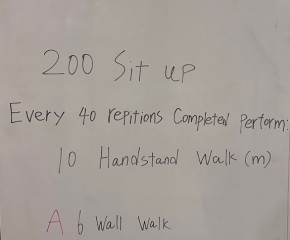 200 Sit up
Every 40 repitions Completed Perform:
10 Handstand Walk (m)
A 6 Wall Walk